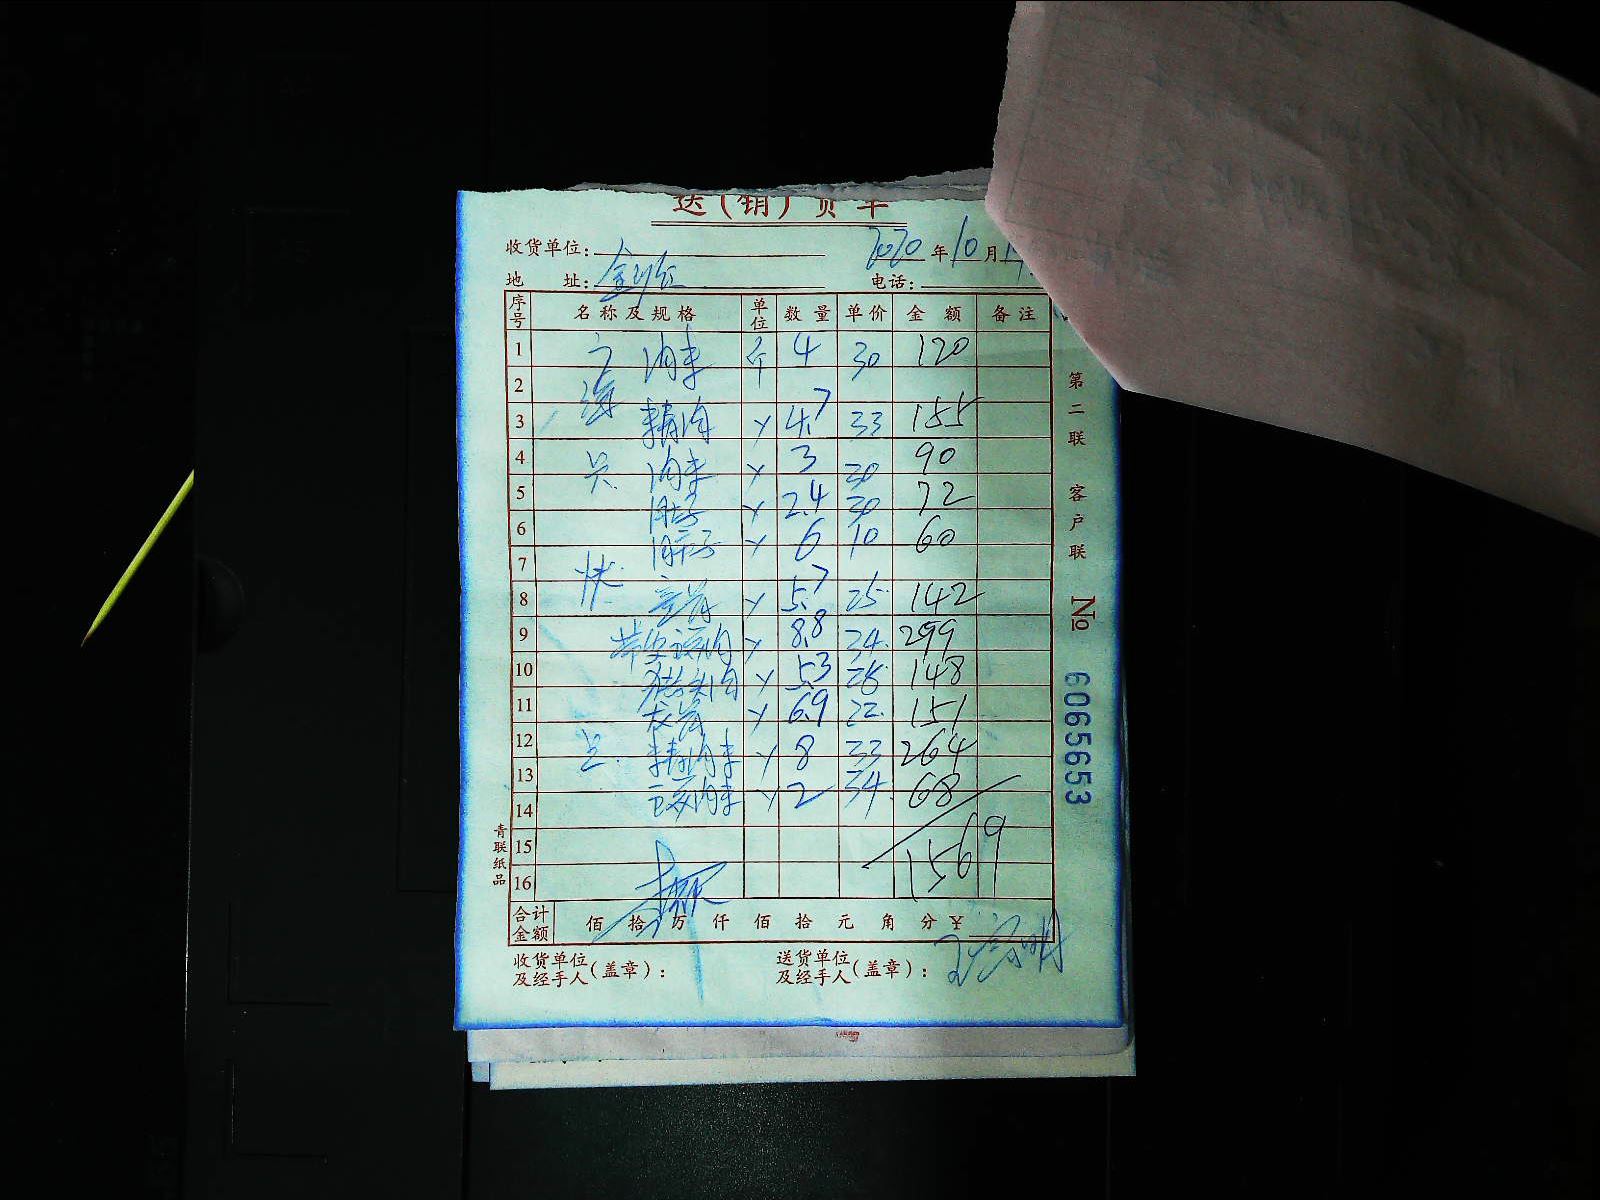 送(销)货单
收货单位: 2020 年 10 月
地 址: 电话:
序号 名称及规格 单位 数量 单价 金额 备注
1 肉末 个 4 30 120
2
3 精肉 斤 4.7 33 155
4 肉末 斤 3 30 90
5 肚子 斤 2.4 30 72
6 斤 6 10 60
7
8 斤 5.7 25 142
9 带皮 肉 斤 8.8 34 299
10 猪头肉 斤 5.3 28 148
11 龙骨 斤 6.9 22 151
12 精肉末 斤 8 33 264
13 肉末 斤 2 34 68
14
15 1569
16
合计金额 佰 拾 万 仟 佰 拾 元 角 分 ¥
收货单位及经手人(盖章): 送货单位及经手人(盖章):
第二联 客户联
No 6065653
青联纸品